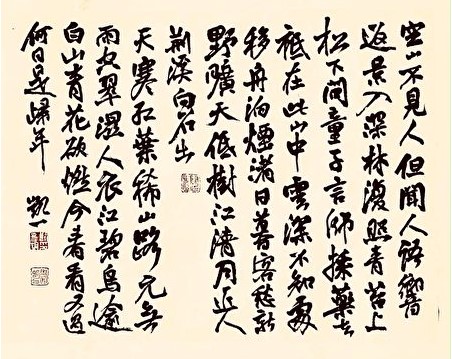 空山不見人但聞人語響
返景入深林復照青苔上
松下問童子言師採藥去
祗在此山中雲深不知處
移舟泊煙渚日暮客愁新
野曠天低樹江清月近人
荆溪白石出
天寒紅葉稀山路元無
雨空翠濕人衣江碧鳥逾
白山青花欲燃今春看又過
何日是歸年 凱一